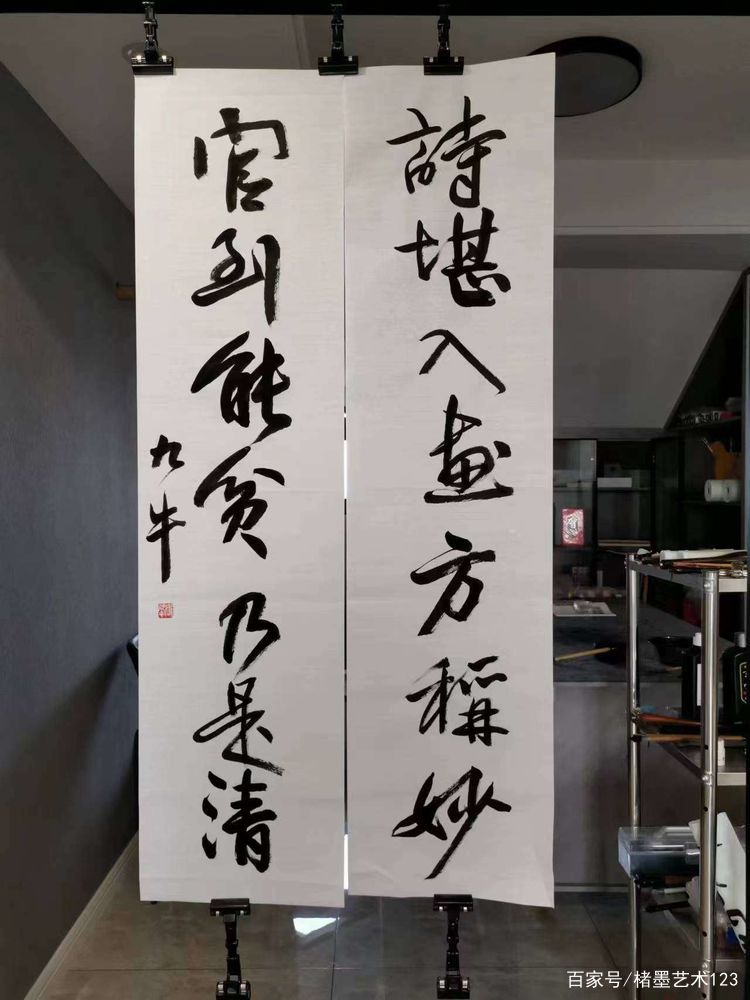 詩堪入畫方稱妙
官到能貧乃是清
九牛
百家号/楮墨艺术123